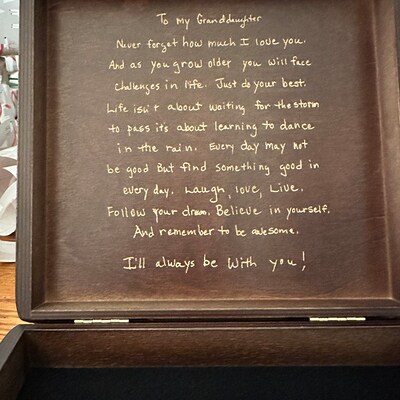 To my Granddaughter
Never forget how much I love you.
And as you grow older you will face
challenges in life. Just do your best.
Life isn't about waiting for the storm
to pass it's about learning to dance
in the rain. Every day may not
be good But find something good in
every day. Laugh, love, Live.
Follow your dream. Believe in yourself.
And remember to be awesome.
I'll always be with you!